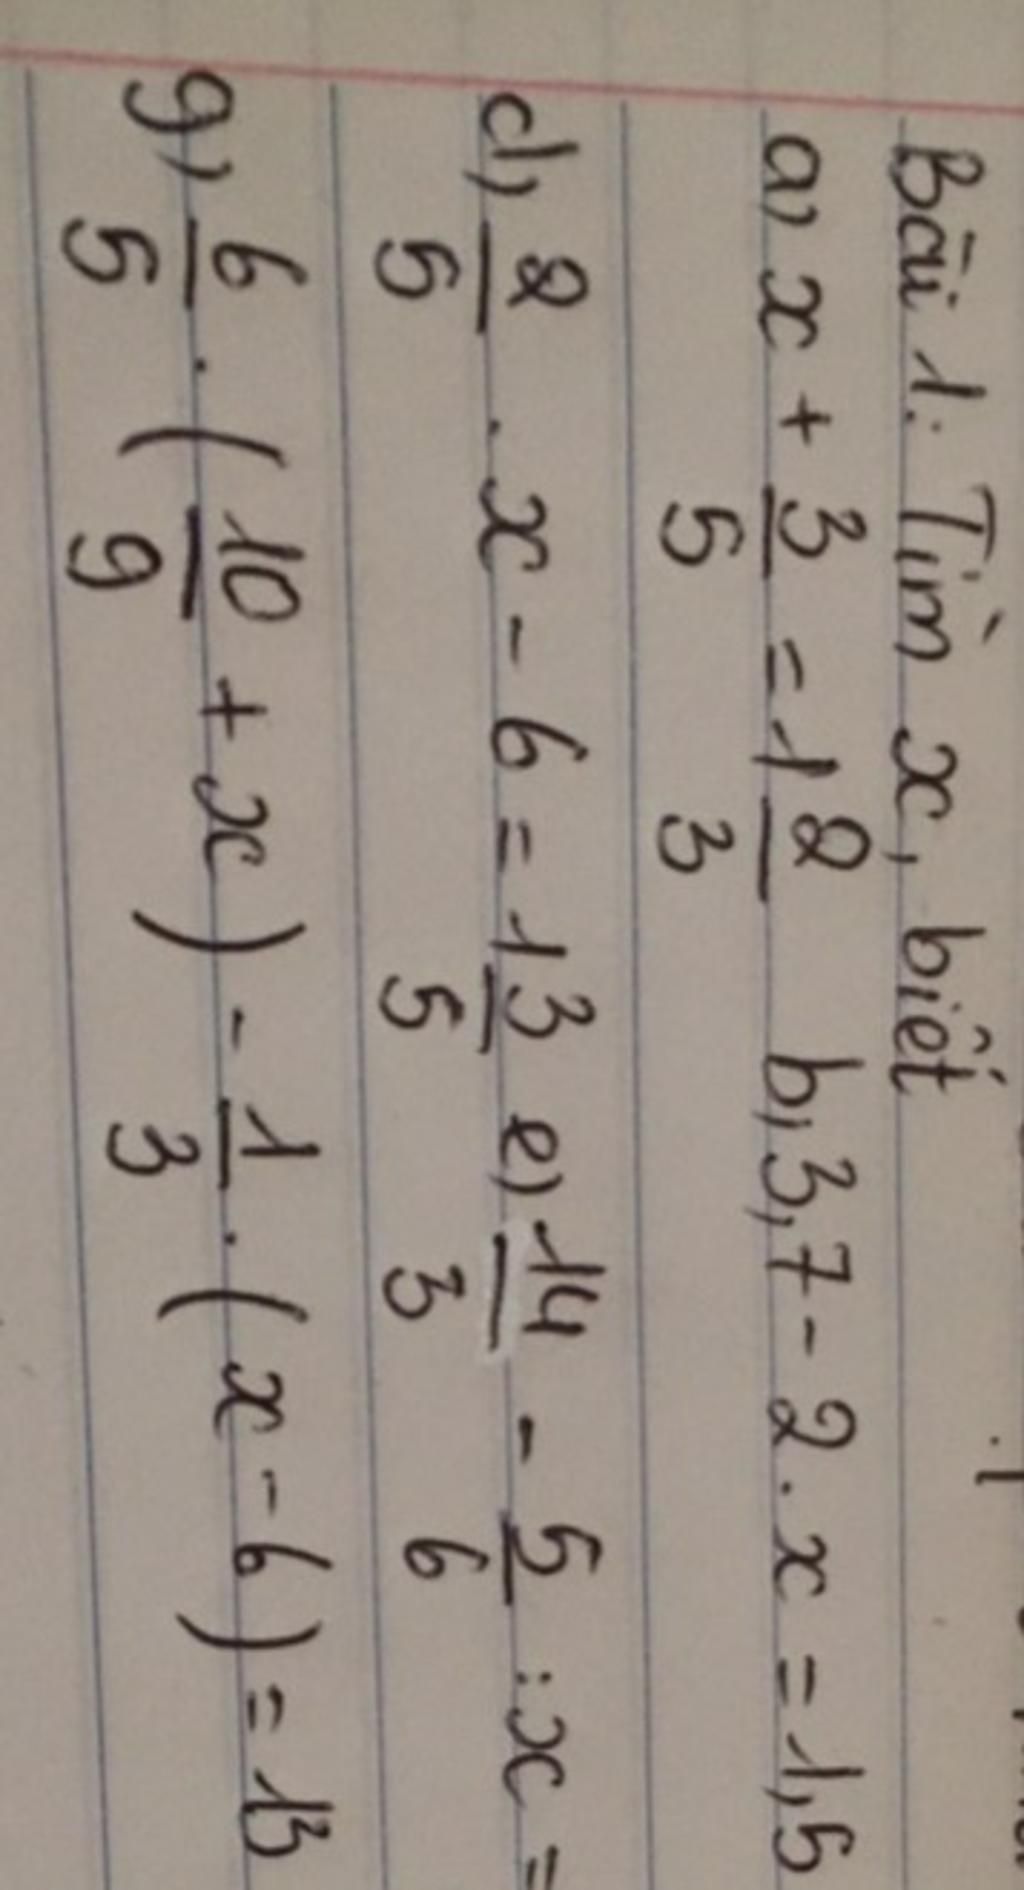 Bài 1: Tìm x, biết
a, x + 3/5 = 1 2/3 b, 3,7 - 2 . x = 1,5
d, 2/5 . x - 6 = 1 3/5 e) 14/3 - 5/6 : x =
g, 6/5 . (10/9 + x) - 1/3 . (x - 6) = 13